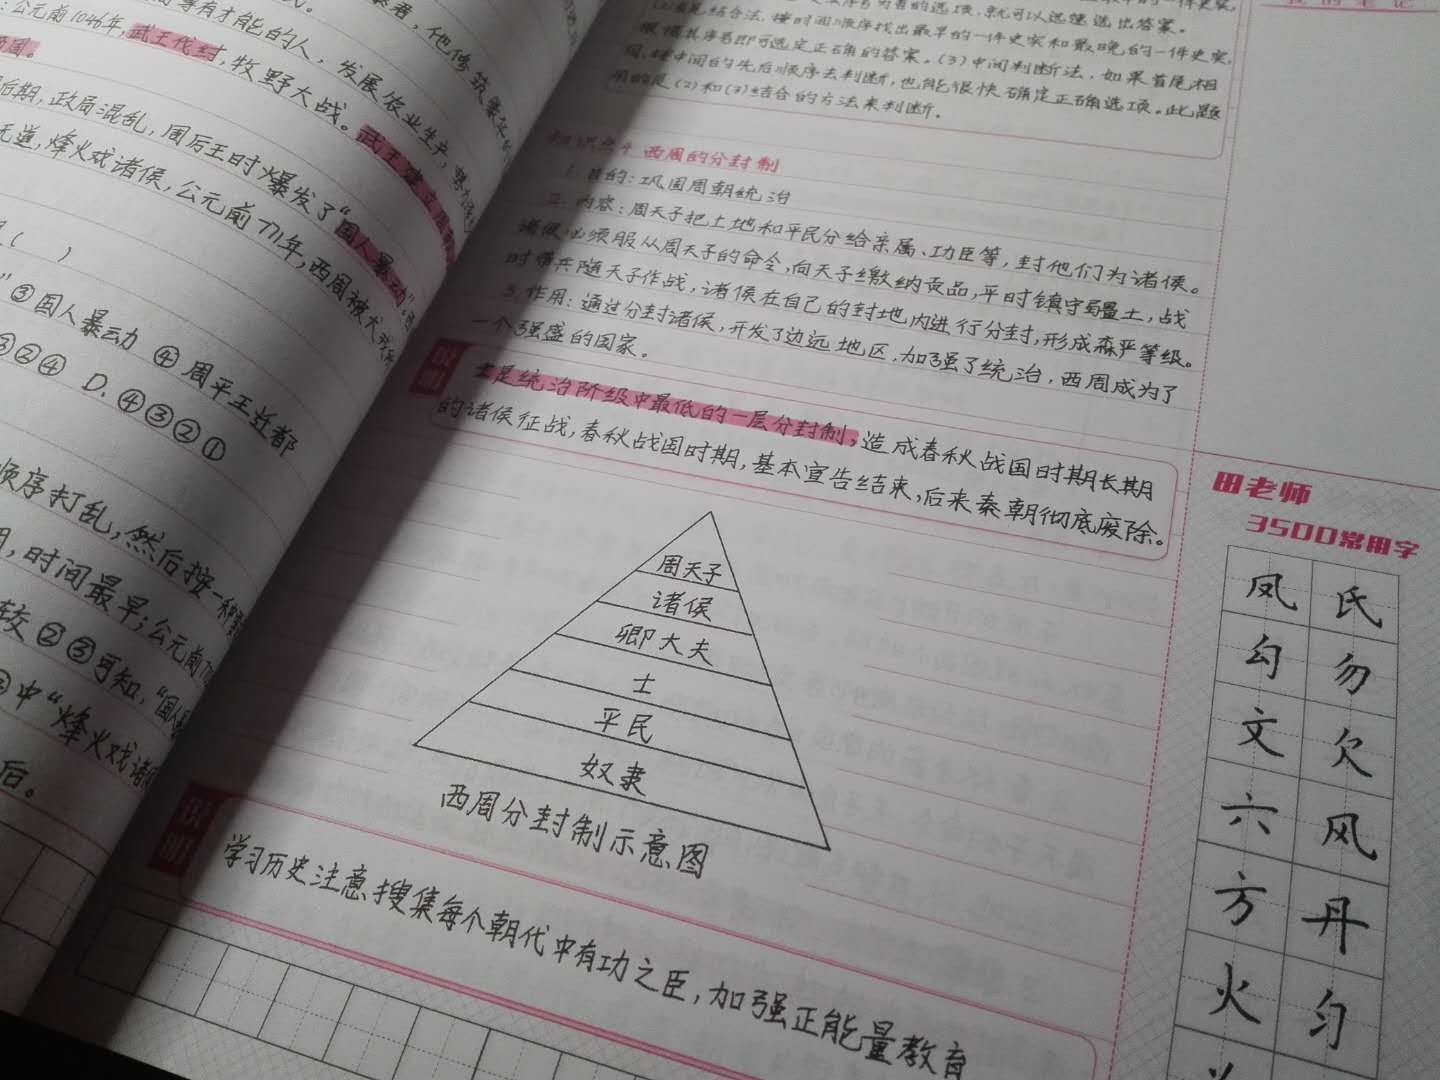 公元前1046年,武王伐纣,牧野大战。武王建立
后期,政局混乱,周厉王时爆发了“国人暴动”。
无道,烽火戏诸侯,公元前771年,西周被犬戎
等有才能的人,发展农业生产,
( )
③国人暴动 ④周平王迁都
③②④ D.④③②①
顺序打乱,然后按一种
时间最早;公元前
较②③可知,“国人
中“烽火戏诸
后。
就可以迅速选出答案。
(2)首尾结合法,按时间顺序找出最早的一件史实和最晚的一件史实,
根据其序号即可选定正确的答案。(3)中间判断法,如果首尾相
同,按中间的先后顺序去判断,也能很快确定正确选项。此题
用的是(2)和(3)结合的方法来判断。
知识点4 西周的分封制
1.目的:巩固周朝统治
2.内容:周天子把土地和平民分给亲属、功臣等,封他们为诸侯。
诸侯必须服从周天子的命令,向天子缴纳贡品,平时镇守疆土,战
时带兵随天子作战,诸侯在自己的封地内进行分封,形成森严等级。
3.作用:通过分封诸侯,开发了边远地区,加强了统治,西周成为了
一个强盛的国家。
说明
士是统治阶级中最低的一层分封制,造成春秋战国时期长期
的诸侯征战,春秋战国时期,基本宣告结束,后来秦朝彻底废除。
周天子
诸侯
卿大夫
士
平民
奴隶
西周分封制示意图
说明
学习历史注意搜集每个朝代中有功之臣,加强正能量教育
田老师
3500常用字
凤 氏
勾 勿
文 欠
六 风
方 丹
火 匀